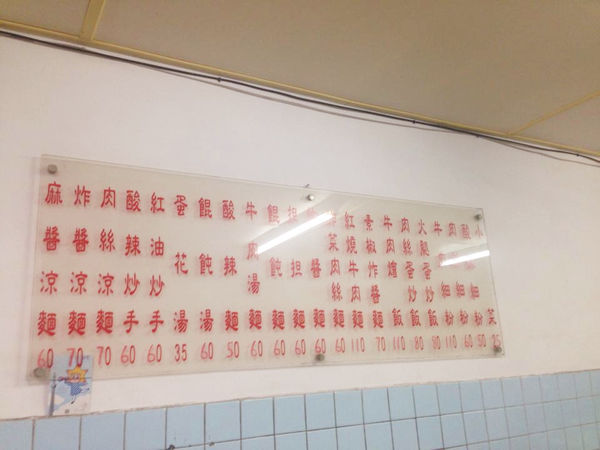 麻醬涼麵 60
炸醬涼麵 70
肉絲涼麵 70
酸辣炒手 60
紅油炒手 60
蛋花湯 35
餛飩湯 60
酸辣麵 50
牛肉湯麵 60
餛飩麵 60
担担麵 60
醬麵 60
菜肉絲麵 60
紅燒牛肉麵 110
素椒炸醬麵 70
牛肉燴飯 110
肉絲蛋炒飯 80
火蛋炒飯 90
牛細粉 110
肉細粉 60
酸細粉 50
小菜 25